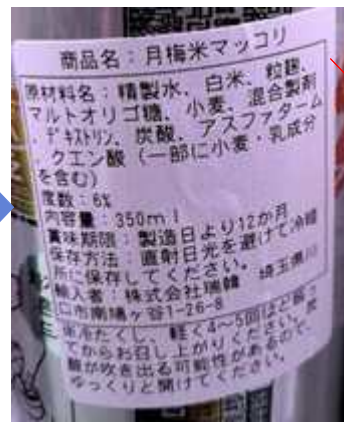 商品名：月梅米マッコリ
原材料名：精製水、白米、粒麹、
マルトオリゴ糖、小麦、混合製剤
、デキストリン、炭酸、アスファターム
、クエン酸（一部に小麦・乳成分
を含む）
度数：6%
内容量：350ml
賞味期限：製造日より12か月
保存方法：直射日光を避けて冷暗
所に保存してください。
輸入者：株式会社瑞韓　埼玉県川
口市南鳩ヶ谷1-26-8
軽く4～5回ほど
てからお召し上がりください。
が吹き出る可能性があるので、
ゆっくりと開けてください。